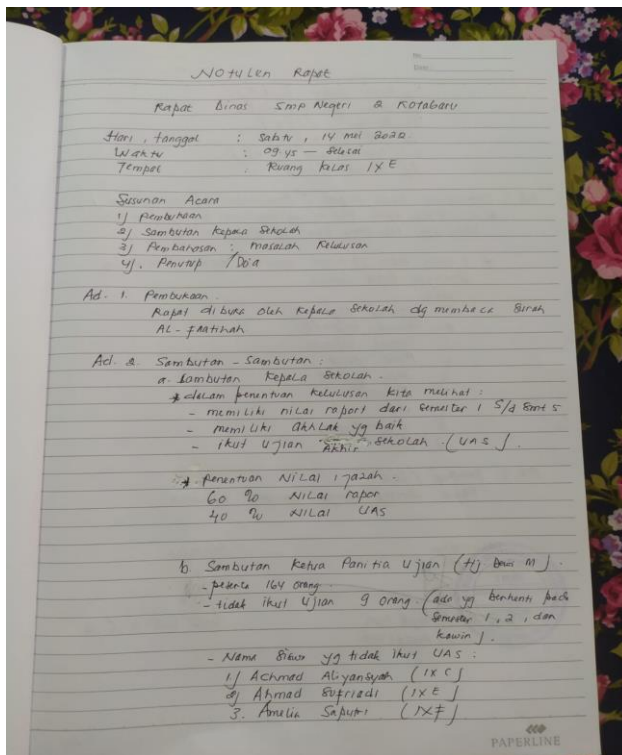 No.
Date.
Notulen Rapat
Rapat Dinas Smp Negeri 2 Kotabaru
Hari, tanggal : Sabtu, 14 Mei 2022
Waktu : 09.45 — Selesai
Tempat : Ruang kelas IX E
Susunan Acara
1) Pembukaan
2) Sambutan Kepala Sekolah
3) Pembahasan : masalah Kelulusan
4). Penutup / Doa
Ad. 1. Pembukaan.
Rapat di buka oleh Kepala Sekolah dg membaca Surah
AL-faatihah
Ad. 2. Sambutan - Sambutan :
a. Sambutan Kepala Sekolah.
dalam penentuan kelulusan kita melihat :
- memiliki nilai raport dari Semester 1 S/d Smt 5
- memiliki akhlak yg baik
- ikut Ujian Akhir Sekolah. (UAS).
Penentuan Nilai ijazah.
60 % Nilai rapor
40 % Nilai UAS
b. Sambutan Ketua Panitia Ujian (Hj M).
- peserta 164 orang.
- tidak ikut Ujian 9 orang. (adn yg berhenti pada
Semester 1, 2, dan
kawin).
- Nama Siswa yg tidak ikut UAS :
1) Achmad Aliyansyah (IX C)
2) Ahmad Supriadi (IX E)
3. Amelia Saputri (IX F)
PAPERLINE